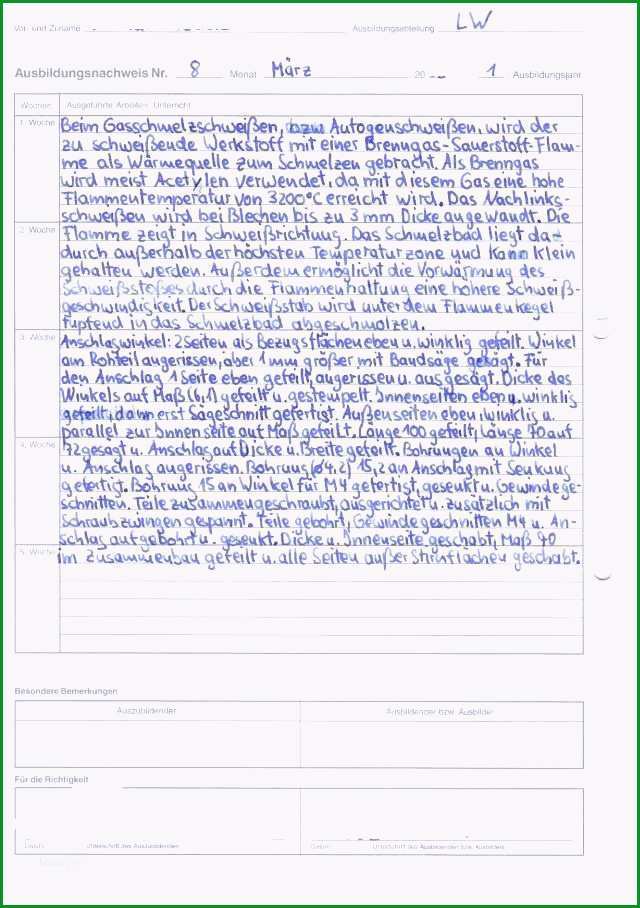 Vor- und Zuname Ausbildungsabteilung LW
Ausbildungsnachweis Nr. 8 Monat März 20 -- 1 Ausbildungsjahr
Wochen Ausgeführte Arbeiten, Unterricht
1. Woche Beim Gasschmelzschweißen, bzw Autogenschweißen, wird der
zu schweißende Werkstoff mit einer Brenngas-Sauerstoff-Flam-
me als Wärmequelle zum Schmelzen gebracht. Als Brenngas
wird meist Acetylen verwendet, da mit diesem Gas eine hohe
Flammentemperatur von 3200°C erreicht wird. Das Nachlinks-
schweißen wird bei Blechen bis zu 3 mm Dicke angewandt. Die
2. Woche Flamme zeigt in Schweißrichtung. Das Schmelzbad liegt da-
durch außerhalb der höchsten Temperaturzone und kann klein
gehalten werden. Außerdem ermöglicht die Vorwärmung des
Schweißstoßes durch die Flammenhaltung eine höhere Schweiß-
geschwindigkeit. Der Schweißstab wird unter dem Flammenkegel
tupfend in das Schmelzbad abgeschmolzen.
3. Woche Anschlagwinkel: 2 Seiten als Bezugsflächen eben u. winklig gefeilt. Winkel
am Rohteil angerissen, aber 1 mm größer mit Bandsäge gesägt. Für
den Anschlag 1 Seite eben gefeilt, angerissen u. ausgesägt. Dicke des
Winkels auf Maß (6,1) gefeilt u. gestempelt. Innenseiten eben u. winklig
gefeilt, dann erst Sägeschnitt gefertigt. Außenseiten eben, winklig u.
parallel zur Innenseite auf Maß gefeilt. Länge 100 gefeilt, Länge 70 auf
4. Woche 72 gesägt u. Anschlag auf Dicke u. Breite gefeilt. Bohrungen an Winkel
u. Anschlag angerissen. Bohrung (ø4,2) 15,2 an Anschlag mit Senkung
gefertigt. Bohrung 15 an Winkel für M4 gefertigt, gesenkt u. Gewinde ge-
schnitten. Teile zusammengeschraubt, ausgerichtet u. zusätzlich mit
Schraubzwingen gespannt. Teile gebohrt, Gewinde geschnitten M4 u. An-
schlag aufgebohrt u. gesenkt. Dicke u. Innenseite geschabt, Maß 70
5. Woche im Zusammenbau gefeilt u. alle Seiten außer Stirnflächen geschabt.
Besondere Bemerkungen
Auszubildender Ausbildender bzw. Ausbilder
Für die Richtigkeit
Datum Unterschrift des Auszubildenden Datum Unterschrift des Ausbildenden bzw. Ausbilders